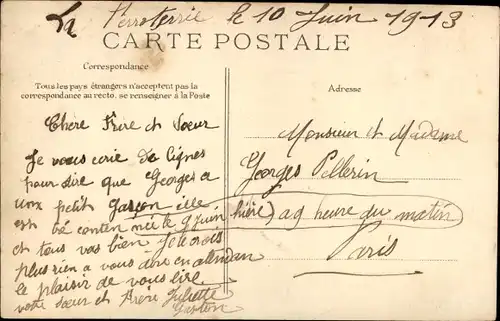 le 10 Juin 1913
CARTE POSTALE
Correspondance
Tous les pays étrangers n'acceptent pas la
correspondance au recto, se renseigner à la Poste
Adresse
Chère Frère et Soeur
Je vous ecrie De lignes
pour dire que Georges a
une petit Garçon elle
est bé conten née le 9 juin (hière) a 9 heure du matin
et tous vas bien Je le crois
plus rien a vous dire en attendan
le plaisir de vous lire
votre soeur et Frère Juliette
Gaston
Monsieur et Madame
Georges Pellerin
Paris